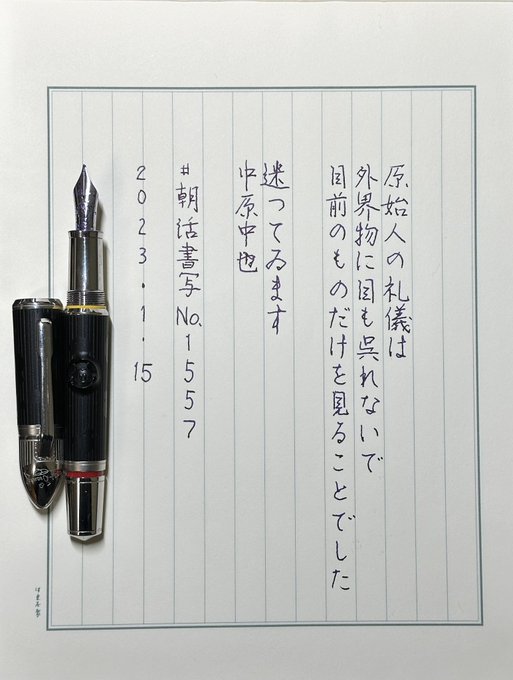 原始人の礼儀は
外界物に目も呉れないで
目前のものだけを見ることでした
迷つてゐます
中原中也
#朝活書写No.1557
2023.1.15